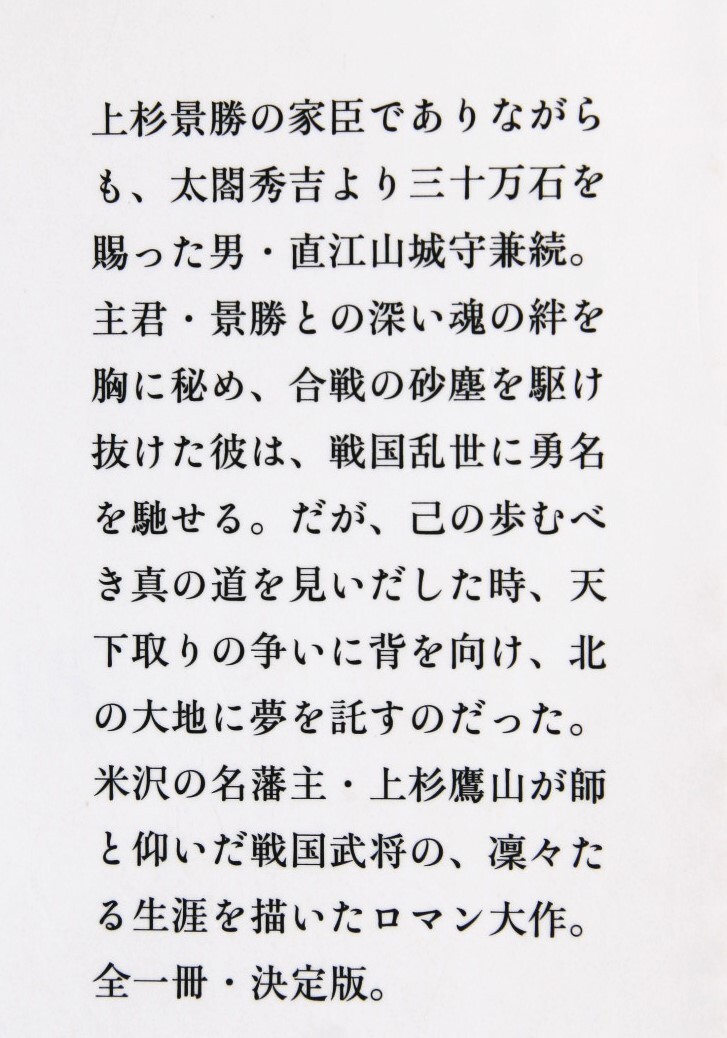 上杉景勝の家臣でありながら
も、太閤秀吉より三十万石を
賜った男・直江山城守兼続。
主君・景勝との深い魂の絆を
胸に秘め、合戦の砂塵を駆け
抜けた彼は、戦国乱世に勇名
を馳せる。だが、己の歩むべ
き真の道を見いだした時、天
下取りの争いに背を向け、北
の大地に夢を託すのだった。
米沢の名藩主・上杉鷹山が師
と仰いだ戦国武将の、凜々た
る生涯を描いたロマン大作。
全一冊・決定版。